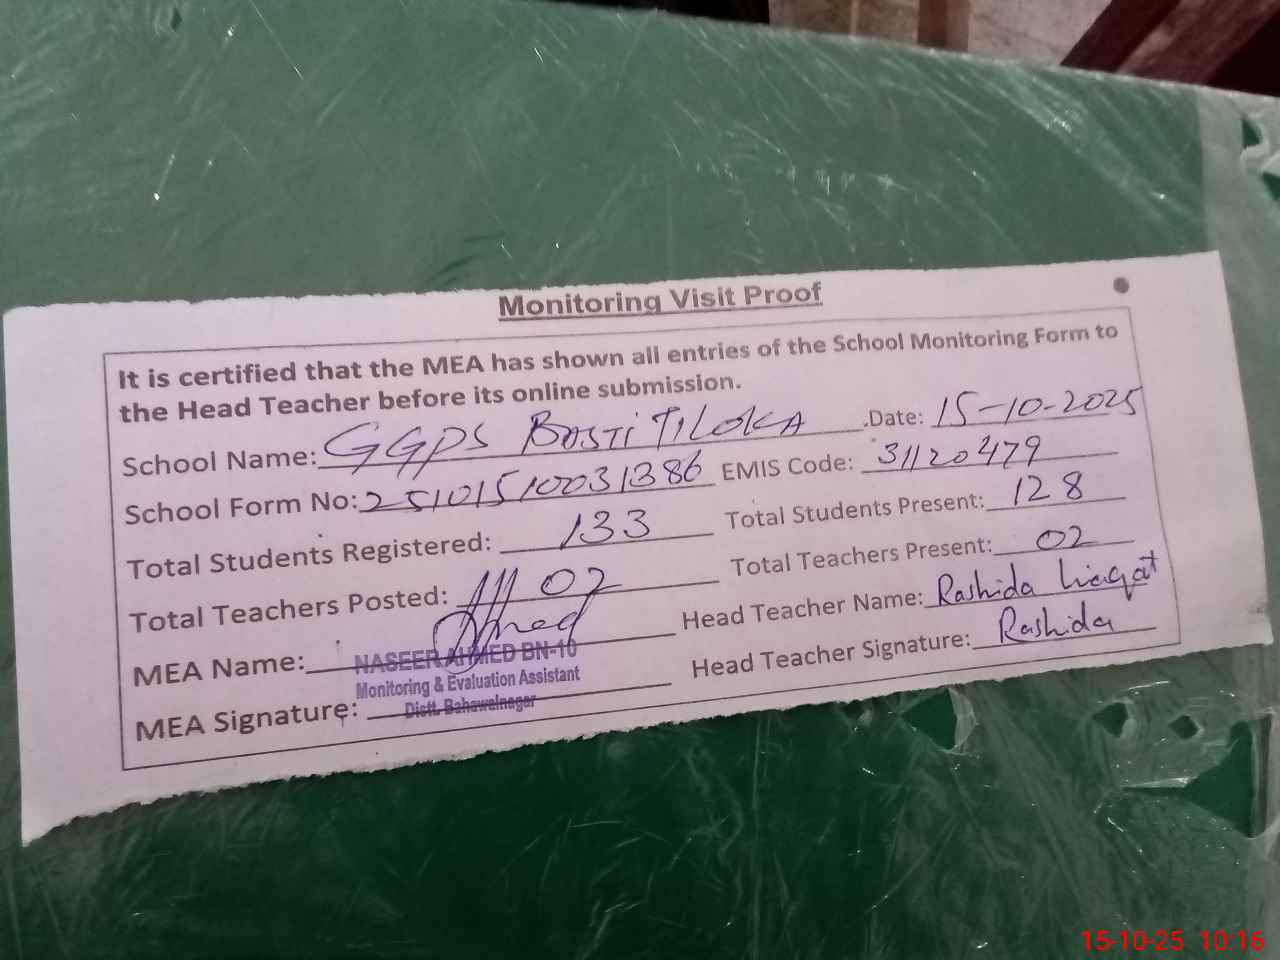 Monitoring Visit Proof
It is certified that the MEA has shown all entries of the School Monitoring Form to
the Head Teacher before its online submission.
School Name: GGPS BASTI TILOKA .Date: 15-10-2025
School Form No: 25101510031386 EMIS Code: 31120479
Total Students Registered: 133 Total Students Present: 128
Total Teachers Posted: 02 Total Teachers Present: 02
MEA Name: NASEER AHMED BN-10 Head Teacher Name: Rashida Liaqat
Monitoring & Evaluation Assistant
MEA Signature: Distt. Bahawalnagar Head Teacher Signature: Rashida
15-10-25 10:16